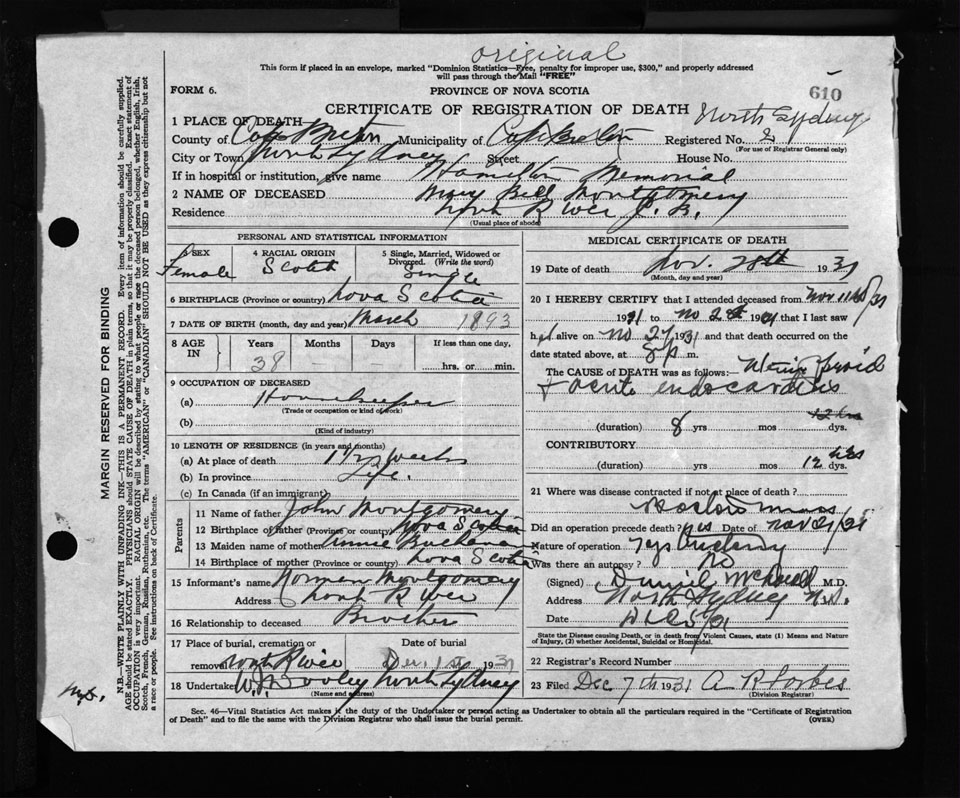 original
This form if placed in an envelope, marked "Dominion Statistics—Free, penalty for improper use, $300," and properly addressed
will pass through the Mail "FREE"
FORM 6.
PROVINCE OF NOVA SCOTIA
610
CERTIFICATE OF REGISTRATION OF DEATH North Sydney
1 PLACE OF DEATH—
County of Cape Breton Municipality of Cape Breton Registered No.
(For use of Registrar General only)
City or Town North Sydney Street House No.
If in hospital or institution, give name Hamilton Memorial
2 NAME OF DECEASED Mary Bell Montgomery
Residence North River C. B.
(Usual place of abode)
PERSONAL AND STATISTICAL INFORMATION
SEX Female
4 RACIAL ORIGIN Scotch
5 Single, Married, Widowed or Divorced. (Write the word) Single
6 BIRTHPLACE (Province or country) Nova Scotia
7 DATE OF BIRTH (month, day and year) March 1893
8 AGE IN
Years Months Days If less than one day,
38 - - hrs. or min.
9 OCCUPATION OF DECEASED
(a) Housekeeper
(Trade or occupation or kind of work)
(b)
(Kind of industry)
10 LENGTH OF RESIDENCE (in years and months)
(a) At place of death 1 1/2 weeks
(b) In province Life.
(c) In Canada (if an immigrant)
Parents
11 Name of father John Montgomery
12 Birthplace of father (Province or country) Nova Scotia
13 Maiden name of mother Annie Buchanan
14 Birthplace of mother (Province or country) Nova Scotia
15 Informant's name Norman Montgomery
Address North River
16 Relationship to deceased Brother
17 Place of burial, cremation or removal North River
Date of burial Dec. 1st 1931
18 Undertaker North Sydney
(Name and address)
MEDICAL CERTIFICATE OF DEATH
19 Date of death Nov. 28th 1931
(Month, day and year)
20 I HEREBY CERTIFY that I attended deceased from Nov 11th/31
1931 to No 28th 1931 that I last saw
her alive on No 27 1931 and that death occurred on the
date stated above, at 8 p m.
The CAUSE of DEATH was as follows:—
+ acute endocarditis
12 hrs
(duration) 8 yrs mos dys.
CONTRIBUTORY
hrs
(duration) yrs mos 12 dys.
21 Where was disease contracted if not at place of death?
Boston Mass
Did an operation precede death? yes Date of Nov 21/31
Nature of operation
Was there an autopsy? No
(Signed) M.D.
Address North Sydney N.S.
Date
State the Disease causing Death, or in death from Violent Causes, state (1) Means and Nature
of Injury, (2) whether Accidental, Suicidal or Homicidal.
22 Registrar's Record Number
23 Filed Dec 7th 1931 A R Forbes
(Division Registrar)
Sec. 46—Vital Statistics Act makes it the duty of the Undertaker or person acting as Undertaker to obtain all the particulars required in the "Certificate of Registration
of Death" and to file the same with the Division Registrar who shall issue the burial permit.
(OVER)
MARGIN RESERVED FOR BINDING
N.B.—WRITE PLAINLY WITH UNFADING INK—THIS IS A PERMANENT RECORD. Every item of information should be carefully supplied.
AGE should be stated EXACTLY. PHYSICIANS should STATE CAUSE OF DEATH in plain terms, so that it may be properly classified. Exact statement of
OCCUPATION is very important. RACIAL ORIGIN will be described by stating to what people or race the deceased person belonged, whether English, Irish,
Scotch, French, German, Russian, Ruthenian, etc. The terms "AMERICAN" or "CANADIAN" SHOULD NOT BE USED as they express citizenship but not
a race or people. See instructions on back of Certificate.